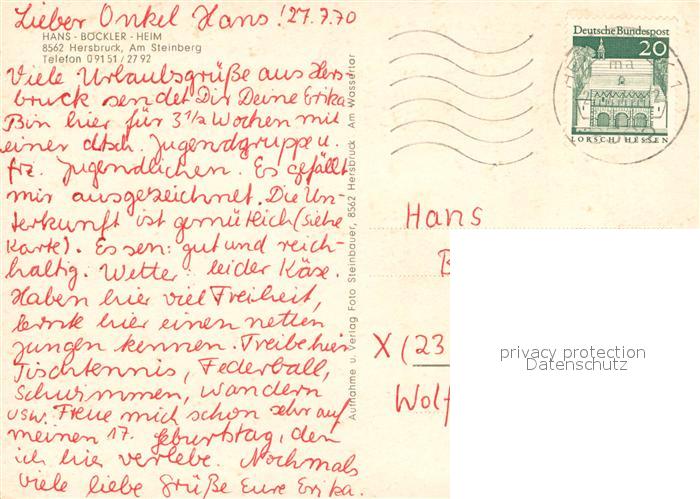 Lieber Onkel Hans! 27.7.70
HANS-BÖCKLER-HEIM
8562 Hersbruck, Am Steinberg
Telefon 09151/2792
Viele Urlaubsgrüße aus Hers-
bruck sendet Dir Deine Erika
Bin hier für 3 1/2 Wochen mit
einer dtsch. Jugendgruppe u.
frz. Jugendlichen. Es gefällt
mir ausgezeichnet. Die Un-
terkunft ist gemütlich (siehe
Karte). Essen: gut und reich-
haltig. Wetter: leider Käse.
Haben hier viel Freiheit,
lernte hier einen netten
Jungen kennen. Treibe hier
Tischtennis, Federball,
Schwimmen, Wandern
usw. Freue mich schon sehr auf
meinen 17. Geburtstag, den
ich hier verlebe. Nochmals
viele liebe Grüße Eure Erika.
Aufnahme u. Verlag Foto Steinbauer, 8562 Hersbruck Am Wassertor
Deutsche Bundespost
20
LORSCH/HESSEN
Hans
B
X (23
Wolf
privacy protection
Datenschutz